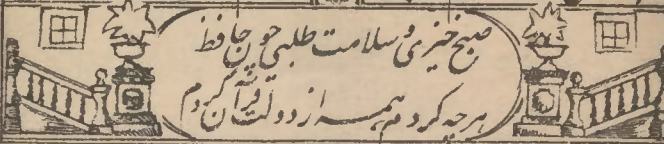 صبح خیزی و سلامت طلبی چون حافظ
هر چه کردم همه از دولت قرآن کردم